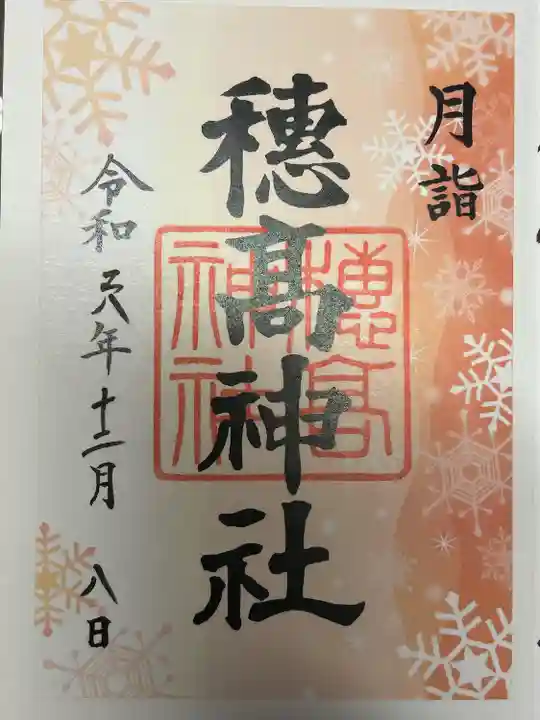 月詣
穂髙神社
穂髙
神社
令和六年十二月 八日